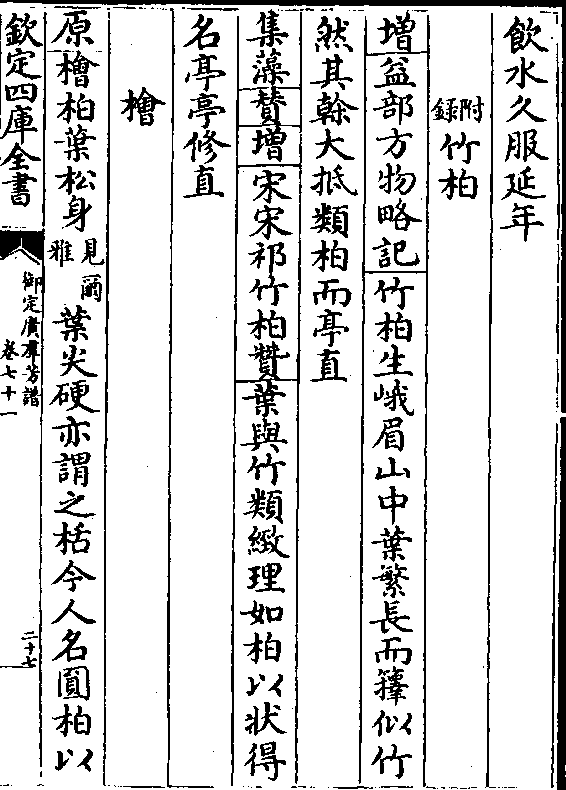 飲水久服延年
附録竹柏
增益部方物略記竹柏生峨眉山中葉繁長而籜似竹
然其幹大抵類柏而亭直
集藻贊增宋宋祁竹柏贊葉與竹類緻理如柏以狀得
名亭亭修直
檜
原檜柏葉松身見爾雅葉尖硬亦謂之栝今人名圓柏以
欽定四庫全書
御定廣羣芳譜
卷七十一
二十七